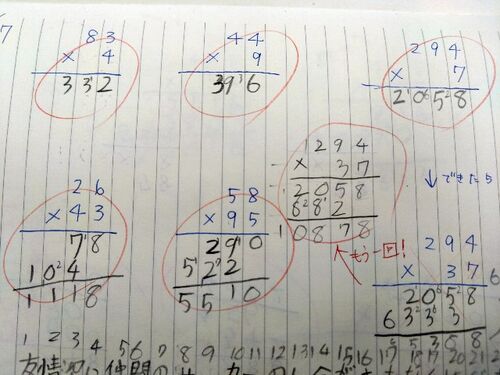 83
× 4
332
44
× 9
396
294
× 7
2058
26
× 43
78
104
1118
58
× 95
290
522
5510
294
× 37
2058
882
10878
↓できたら
もう一回!
294
× 37
2058
1 2 3 4 5 6 7 8 9 10 11 12 13 14 15 16 17 18 19 20 21
友情
仲間の